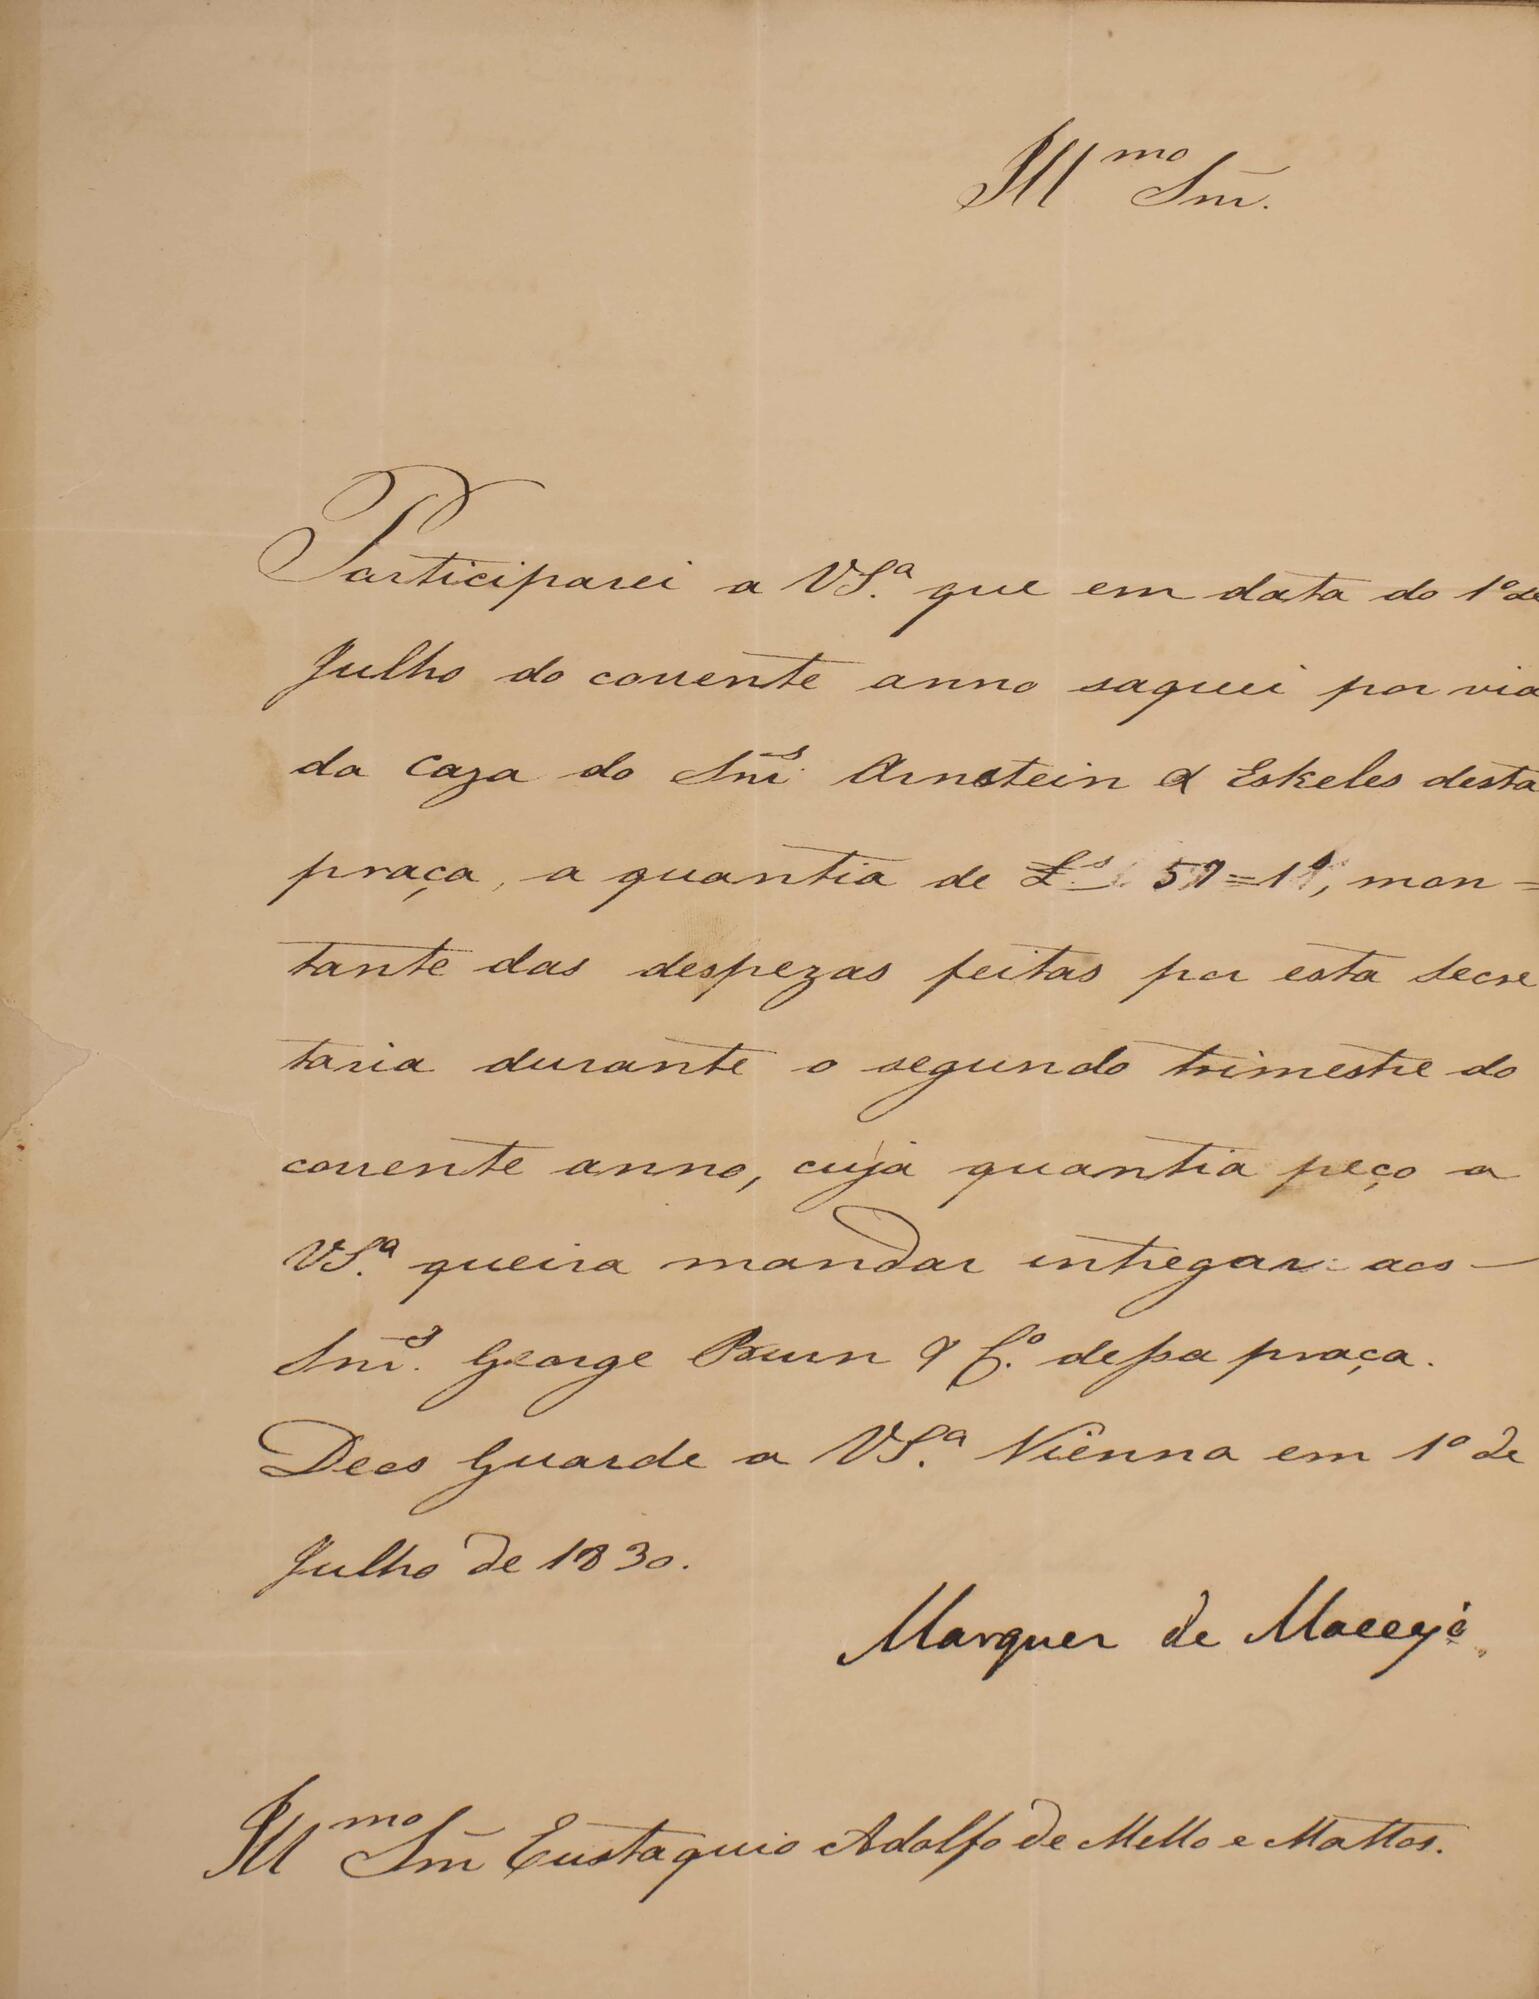 Ill.mo Snr.
Participarei a VS.ª que em data do 1º de
Julho do corrente anno saquei por via
da Caza do Snr.s Arnstein & Eskeles desta
praça, a quantia de £.s 57=1, mon=
tante das despezas feitas por esta Secre
taria durante o segundo trimestre do
corrente anno, cuja quantia peço a
VS.ª queira mandar intregar aos
Snr.s George Brun & C.º dessa praça.
Deos Guarde a VS.ª Viênna em 1º de
Julho de 1830.
Marquez de Maceyó
Ill.mo Snr Eustaquio Adolfo de Mello e Mattos.